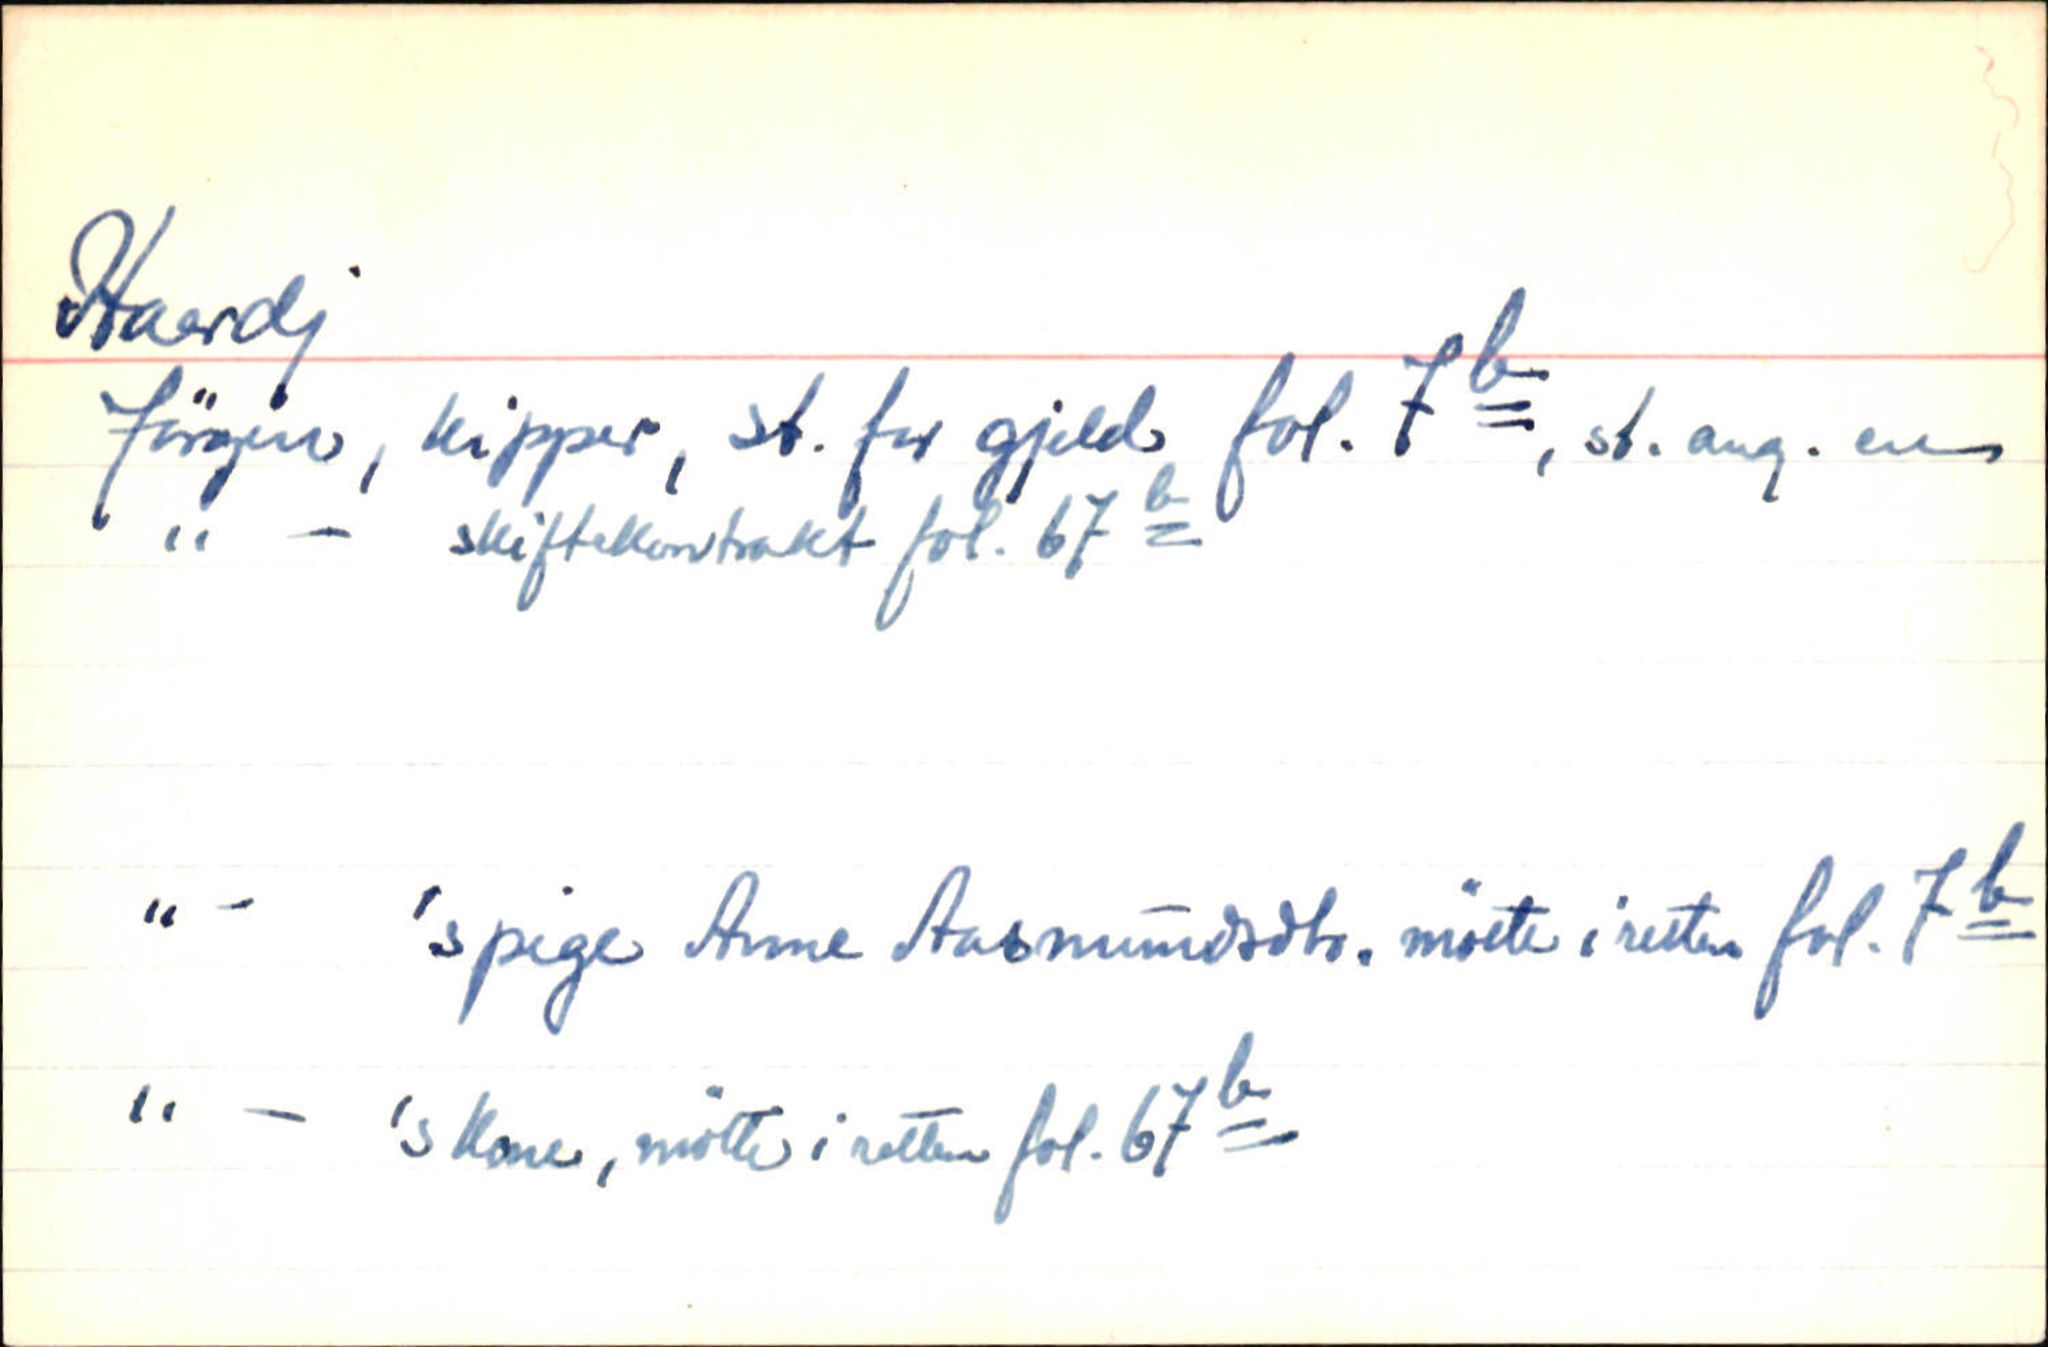 Haerdj
Jörgen, kipper, st. for gjeld fol. 7b, st. ang. en
" — skiftekontrakt fol. 67b
" — 's pige Anne Aasmundsdtr. mötte i retten fol. 7b
" — 's kone, mötte i retten fol. 67b